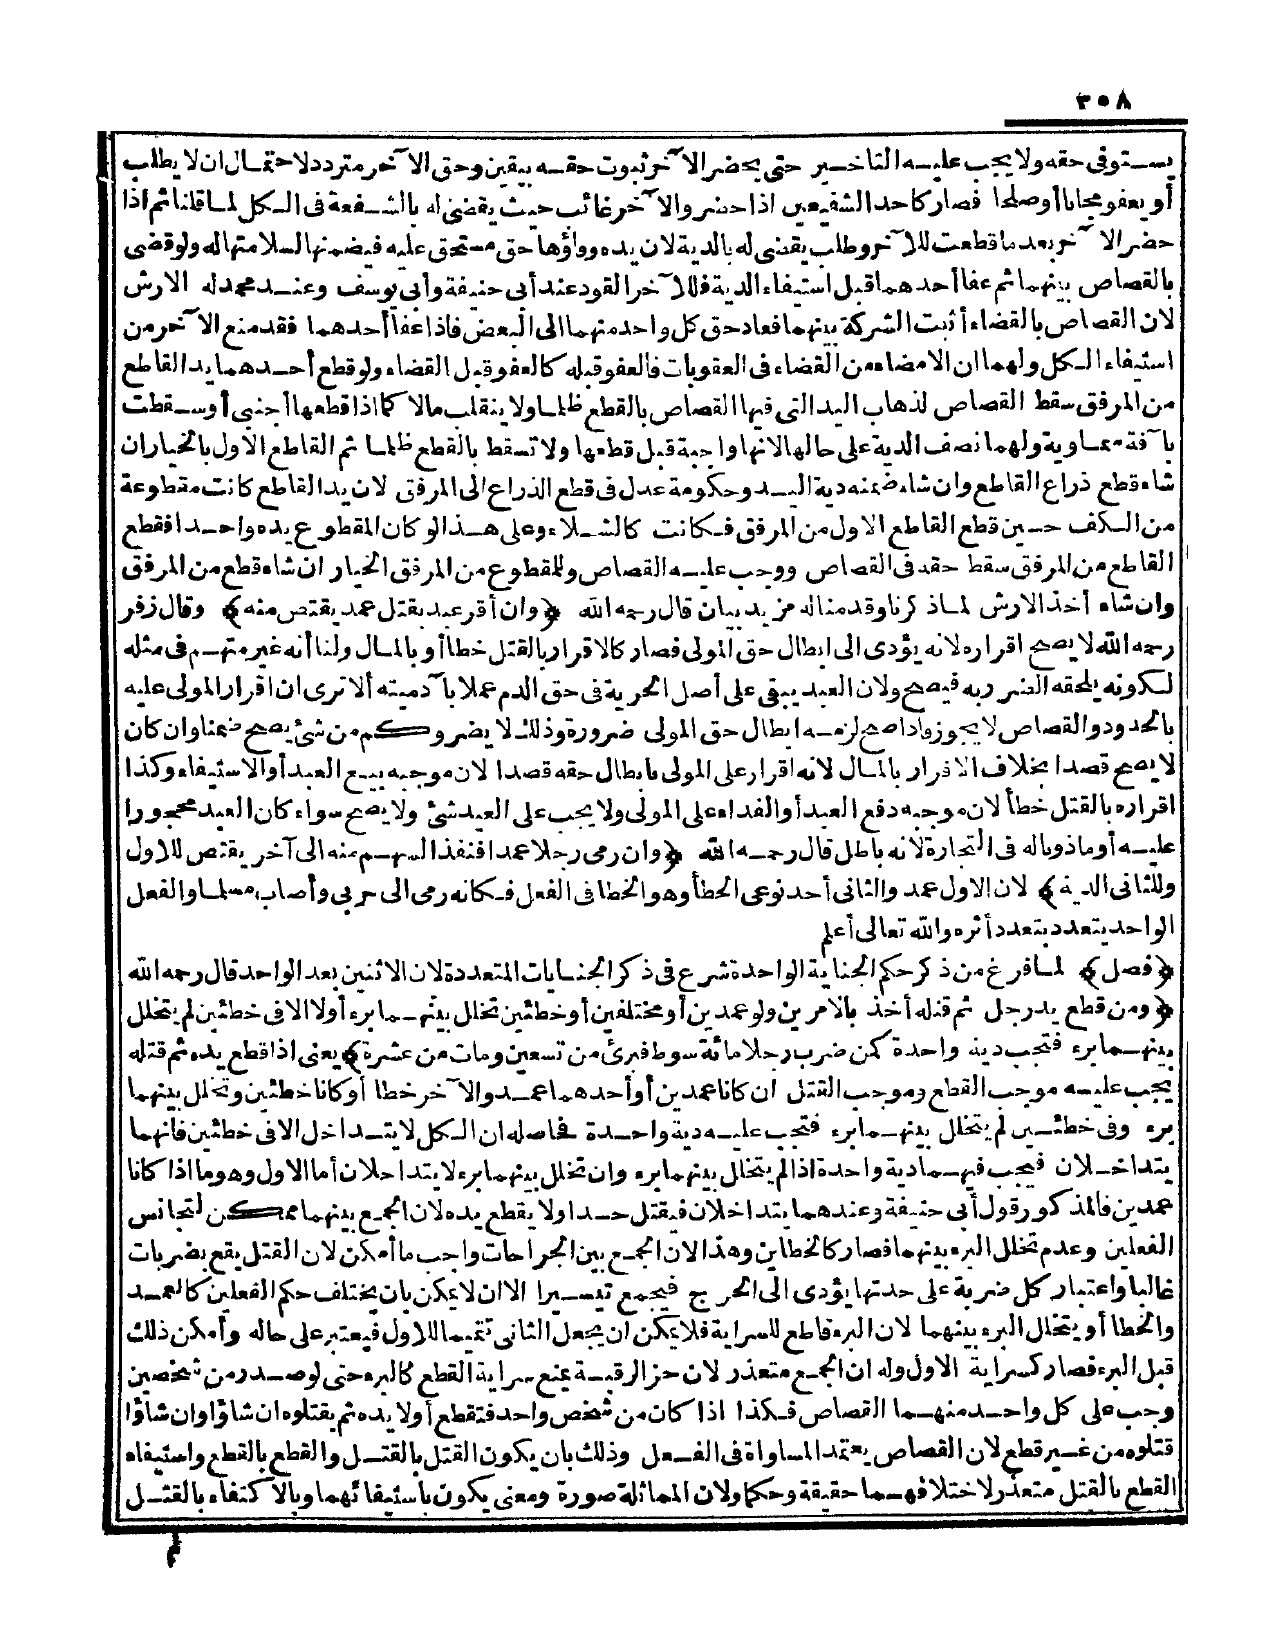 ٣٥٨
يستوفى حقه ولا يجب عليه التأخير حتى يحضر الآخر ثبوت حقه بيقين وحق الآخر متردد لاحتمال ان لا يطلب
أو يعفو مجانا أو صلحا فصار كاحد الشفيعين اذا حضر والآخر غائب حيث يقضى له بالشفعة فى الكل لما قلنا ثم اذا
حضر الآخر بعد ما قطعت للآخر وطلب يقضى له بالدية لان يده ووفاؤها حق مستحق عليه فيضمنها لسلامتها له ولو قضى
بالقصاص بينهما ثم عفا أحدهما قبل استيفاء الدية فللآخر القود عند أبى حنيفة وأبى يوسف وعند محمد له الارش
لان القصاص بالقضاء أثبت الشركة بينهما فعاد حق كل واحد منهما الى البعض فاذا عفا أحدهما فقد منع الآخر من
استيفاء الكل ولهما ان الامضاء من القضاء فى العقوبات فالعفو قبله كالعفو قبل القضاء ولو قطع أحدهما يد القاطع
من المرفق سقط القصاص لذهاب اليد التى فيها القصاص بالقطع ظلما ولا ينقلب مالا كما اذا قطعها أجنبى أو سقطت
بآفة سماوية ولهما نصف الدية على حالها لانها واجبة قبل قطعها ولا تسقط بالقطع ظلما ثم القاطع الاول بالخيار ان
شاء قطع ذراع القاطع وان شاء ضمنه دية اليد وحكومة عدل فى قطع الذراع الى المرفق لان يد القاطع كانت مقطوعة
من الكف حين قطع القاطع الاول من المرفق فكانت كالشلاء وعلى هذا لو كان المقطوع يده واحدا فقطع
القاطع من المرفق سقط حقه فى القصاص ووجب عليه القصاص وللمقطوع من المرفق الخيار ان شاء قطع من المرفق
وان شاء أخذ الارش لما ذكرنا وقد مناله مزيد بيان قال رحمه الله ﴿وان أقر عبد بقتل عمد يقتص منه﴾ وقال زفر
رحمه الله لا يصح اقراره لانه يؤدى الى ابطال حق المولى فصار كالاقرار بالقتل خطا أو بالمال ولنا أنه غير متهم فى مثله
لكونه يلحقه الضرر به فيصح ولان العبد يبقى على أصل الحرية فى حق الدم عملا بآدميته ألا ترى ان اقرار المولى عليه
بالحدود والقصاص لا يجوز واذا صح لزمه ابطال حق المولى ضرورة وذلك لا يضر وكم من شئ يصح ضمنا وان كان
لا يصح قصدا بخلاف الاقرار بالمال لانه اقرار على المولى بابطال حقه قصدا لان موجبه بيع العبد أو الاستيفاء وكذا
اقراره بالقتل خطأ لان موجبه دفع العبد أو الفداء على المولى ولا يجب على العبد شئ ولا يصح سواء كان العبد محجورا
عليه أو ماذونا له فى التجارة لانه باطل قال رحمه الله ﴿وان رمى رجلا عمدا فنفذ السهم منه الى آخر يقتص للاول
وللثانى الدية﴾ لان الاول عمد والثانى أحد نوعى الخطأ وهو الخطا فى الفعل فكانه رمى الى حربى وأصاب مسلما والفعل
الواحد يتعدد بتعدد أثره والله تعالى أعلم
﴿فصل﴾ لما فرغ من ذكر حكم الجناية الواحدة شرع فى ذكر الجنايات المتعددة لان الاثنين بعد الواحد قال رحمه الله
﴿ومن قطع يد رجل ثم قتله أخذ بالامرين ولو عمدين أو مختلفين أو خطئين تخلل بينهما برء أولا الا فى خطئين لم يتخلل
بينهما برء فتجب دية واحدة كمن ضرب رجلا مائة سوط فبرئ من تسعين ومات من عشرة﴾ يعنى اذا قطع يده ثم قتله
يجب عليه موجب القطع وموجب القتل ان كانا عمدين أو أحدهما عمد والآخر خطا أو كانا خطئين وتخلل بينهما
برء وفى خطئين لم يتخلل بينهما برء فتجب عليه دية واحدة فحاصله ان الكل لا يتداخل الا فى خطئين فانهما
يتداخلان فيجب فيهما دية واحدة اذا لم يتخلل بينهما برء وان تخلل بينهما برء لا يتداخلان أما الاول وهو ما اذا كانا
عمدين فالمذكور قول أبى حنيفة وعندهما يتداخلان فيقتل حدا ولا يقطع يده لان الجمع بينهما ممكن لتجانس
الفعلين وعدم تخلل البرء بينهما فصار كالخطاين وهذا لان الجمع بين الجراحات واجب ما أمكن لان القتل يقع بضربات
غالبا واعتبار كل ضربة على حدتها يؤدى الى الحرج فيجمع تيسيرا الا ان لا يمكن بان يختلف حكم الفعلين كالعمد
والخطا أو يتخلل البرء بينهما لان البرء قاطع للسراية فلا يمكن ان يجعل الثانى تتميما للاول فيعتبر على حاله وأمكن ذلك
قبل البرء فصار كسراية الاول وله ان الجمع متعذر لان حز الرقبة يمنع سراية القطع كالبرء حتى لو صدر من شخصين
وجب على كل واحد منهما القصاص فكذا اذا كان من شخص واحد فتقطع أولا يده ثم يقتلوه ان شاؤا وان شاؤا
قتلوه من غير قطع لان القصاص يعتمد المساواة فى الفعل وذلك بان يكون القتل بالقتل والقطع بالقطع واستيفاء
القطع بالقتل متعذر لاختلافهما حقيقة وحكما ولان المماثلة صورة ومعنى يكون باستيفائهما وبالاكتفاء بالقتل